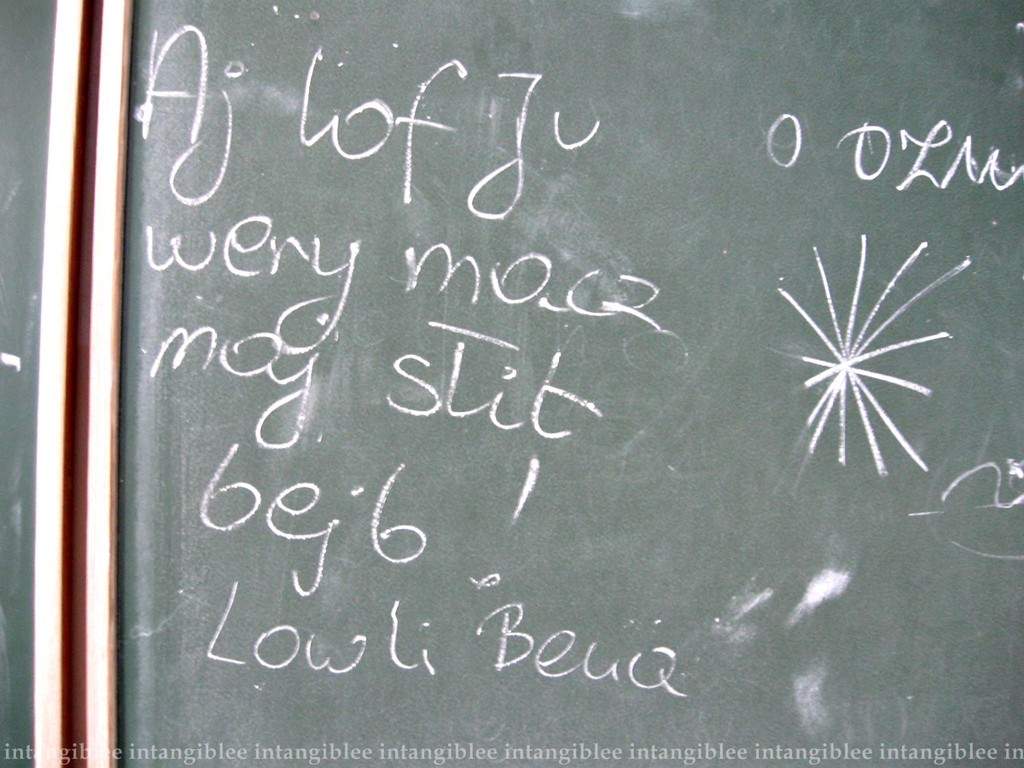 Aj lof Ju
wery macz
maj słit
bejb!
Lowli Bena
o
intangiblee intangiblee intangiblee intangiblee intangiblee intangiblee intangiblee intangiblee in